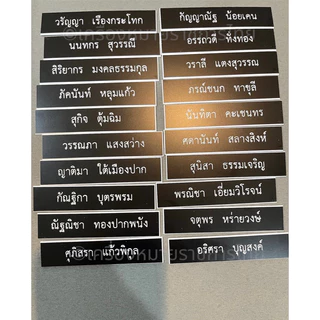 วรัญญา เรืองกระโทก
นนทกร สุวรรณี
สิริยากร มงคลธรรมกุล
ภัคนันท์ หลุมแก้ว
สุกิจ ตุ้มฉิม
วรรณภา แสงสว่าง
ญาติมา ใต้เมืองปาก
กัณฐิกา บุตรพรม
ณัฐณิชา ทองปากพนัง
ศุภิสรา แก้วพิกุล
กัญญาณัฐ น้อยเคน
อรรถวดี ทิ้งทอง
วราลี แตงสุวรรณ
ภรณ์ชนก ทาขุลี
นันทิตา คะเชนทร
ศตานันท์ สลางสิงห์
สุนิสา ธรรมเจริญ
พรณิชา เอี่ยมวิโรจน์
จตุพร หร่ายวงษ์
อริศรา บุญสงค์